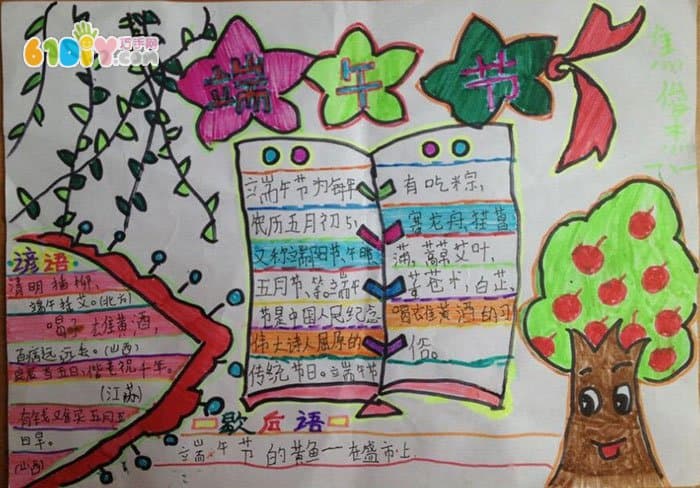 61DIY巧手网
.com
端午节
谚语
清明插柳,
端午插艾。(北方)
喝了雄黄酒,
百病远远去。(山西)
良辰当五日,偕老祝千年。
(江苏)
有钱又难买五月五
日旱。
(山西)
端午节为每年
农历五月初五,
又称端阳节、午日
五月节、等。端午
节是中国人民纪念
伟大诗人屈原的
传统节日。端午节
有吃粽,
赛龙舟,挂菖
蒲、蒿草艾叶,
苍术,白芷,
喝雄黄酒的习
俗。
歇后语
端午节的黄鱼——在盛市上